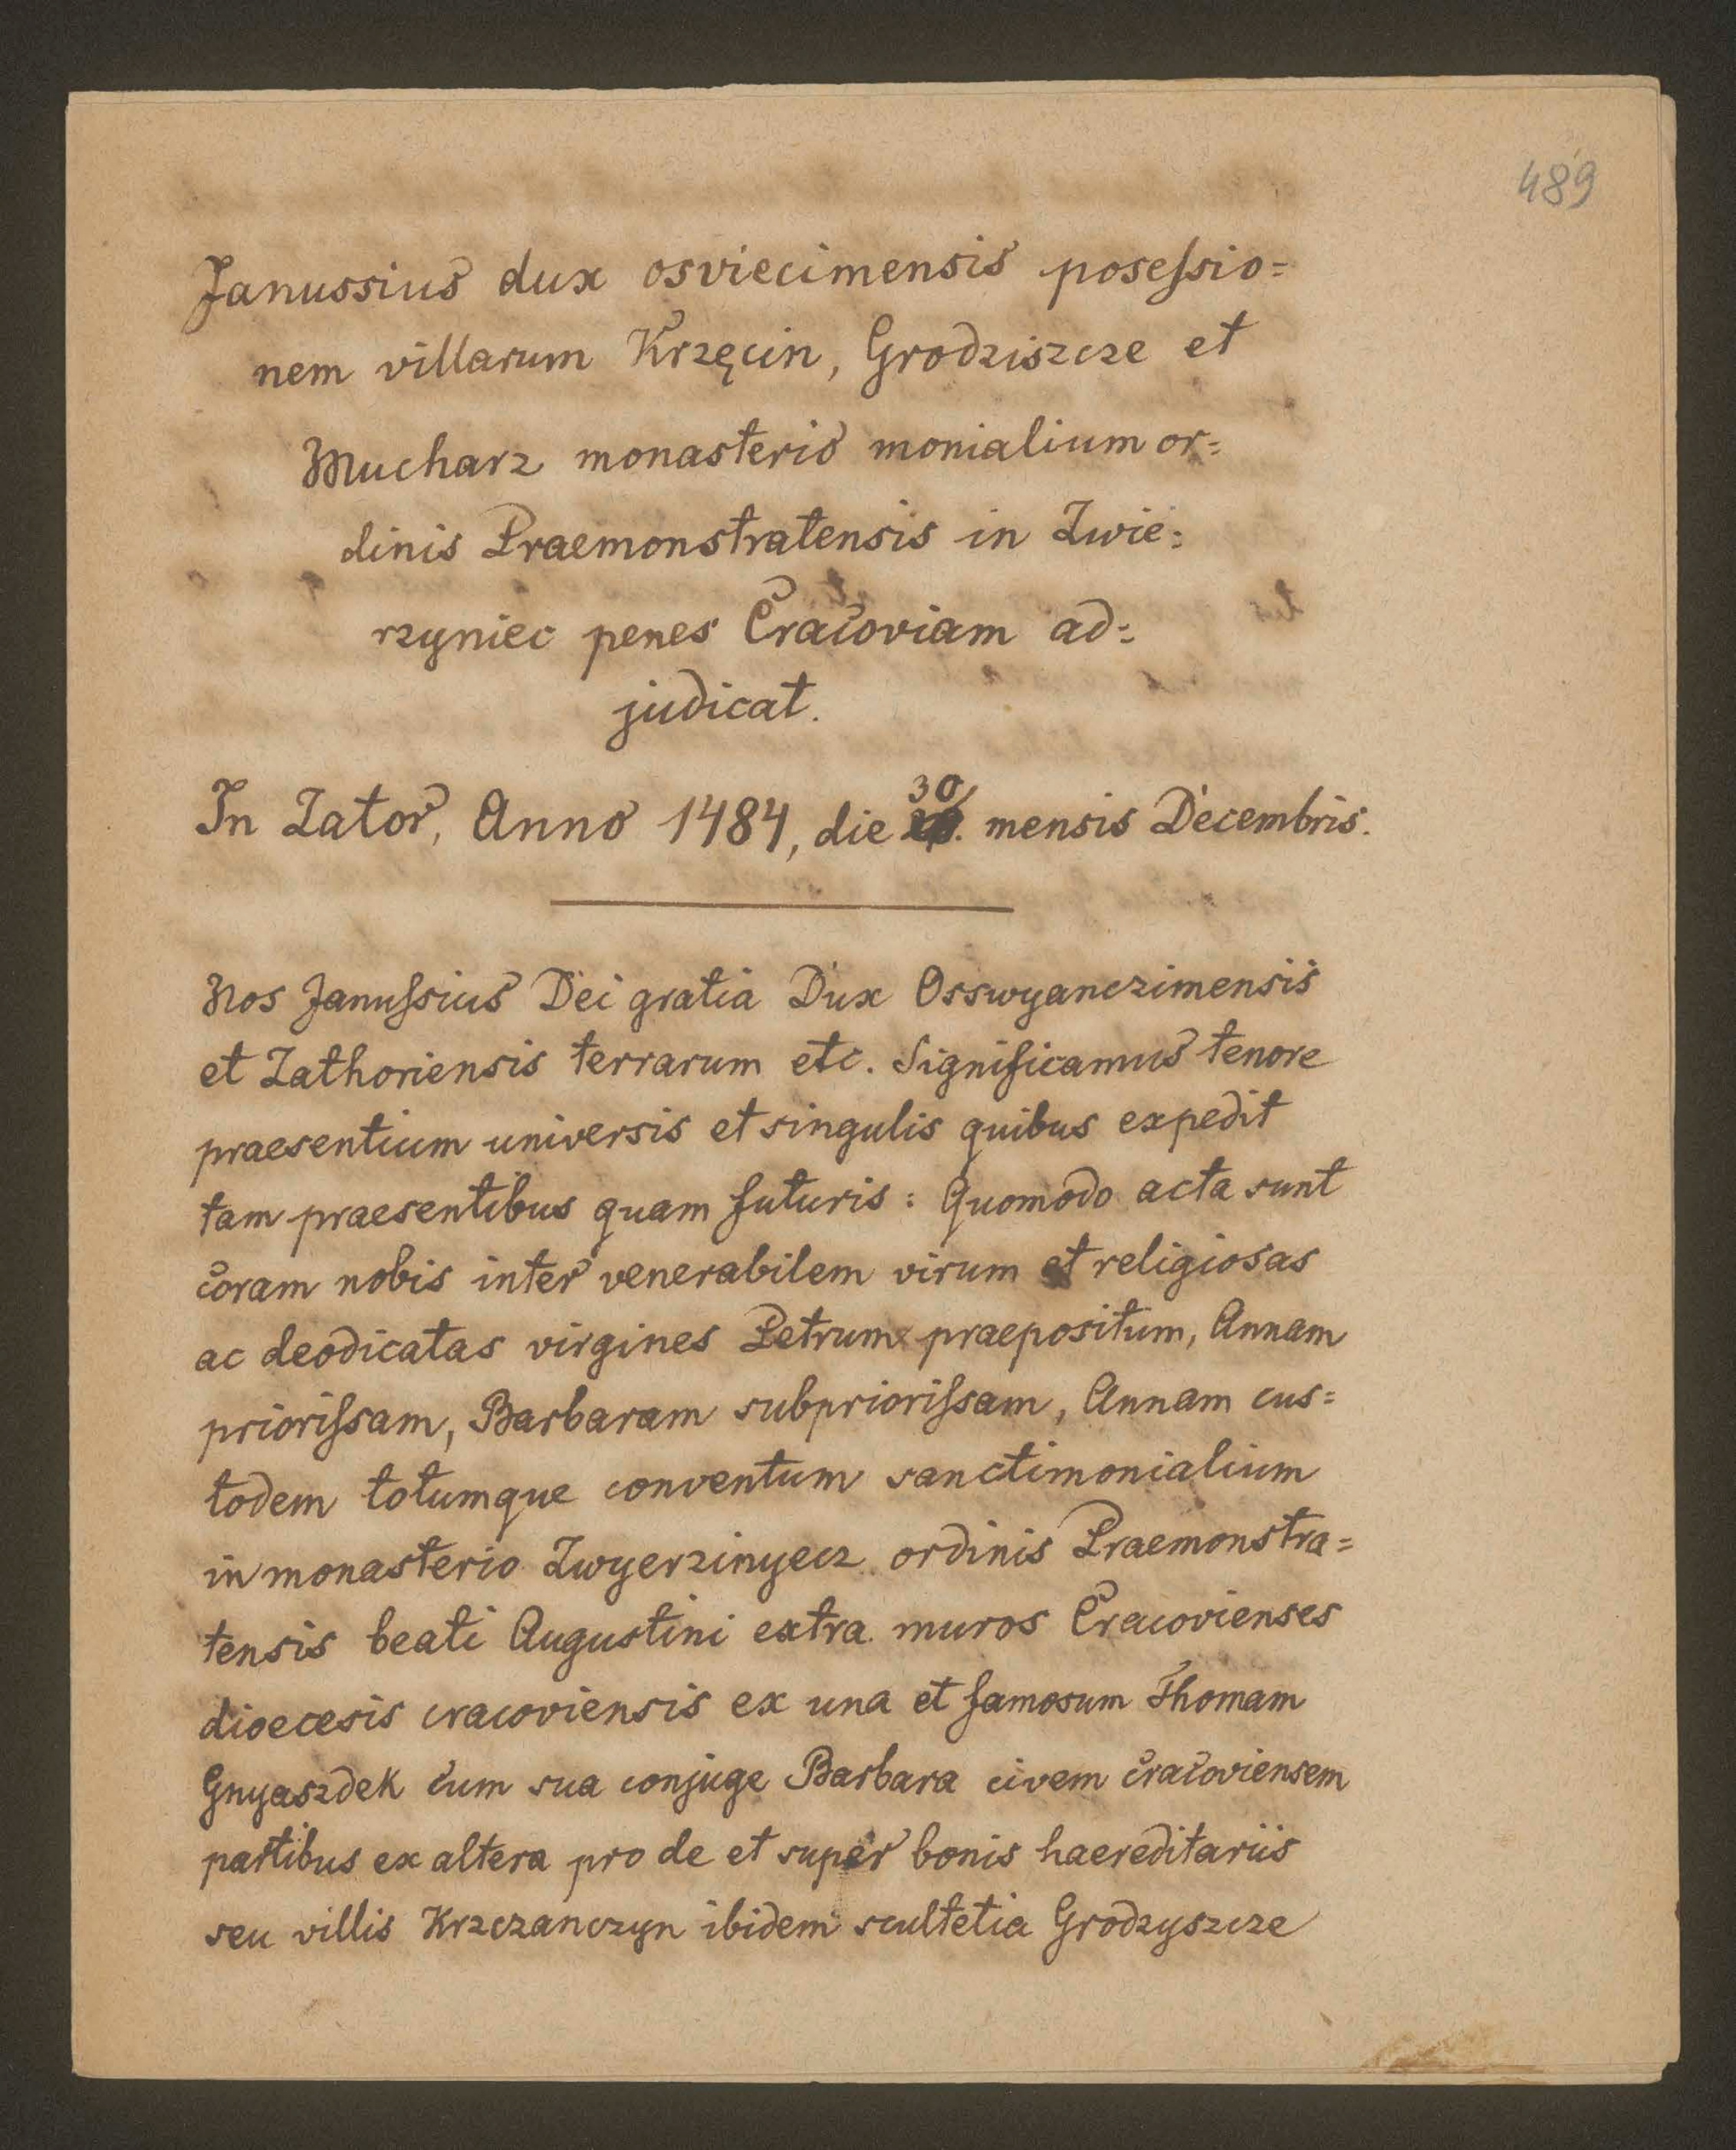 489
Janussius dux osviecimensis poseſsio=
nem villarum Krzęcin, Grodziszcze et
Mucharz monasterio monialium or=
dinis Praemonstratensis in Zwie=
rzyniec penes Cracoviam ad=
judicat.
In Zator, Anno 1484, die 30 mensis Decembris.
Nos Januſsius Dei gratia Dux Osswyanczimensis
et Zathoriensis terrarum etc. Significamus tenore
praesentium universis et singulis quibus expedit
tam praesentibus quam futuris: Quomodo acta sunt
coram nobis inter venerabilem virum et religiosas
ac deodicatas virgines Petrum praepositum, Annam
prioriſsam, Barbaram subprioriſsam, Annam cus=
todem totumque conventum sanctimonialium
in monasterio Zwyerzinyecz ordinis Praemonstra=
tensis beati Augustini extra muros Cracovienses
dioecesis cracoviensis ex una et famosum Thomam
Gnyaszdek cum sua conjuge Barbara civem cracoviensem
partibus ex altera pro de et super bonis haereditariis
seu villis Krzczanczyn ibidem scultetia Grodzyszcze